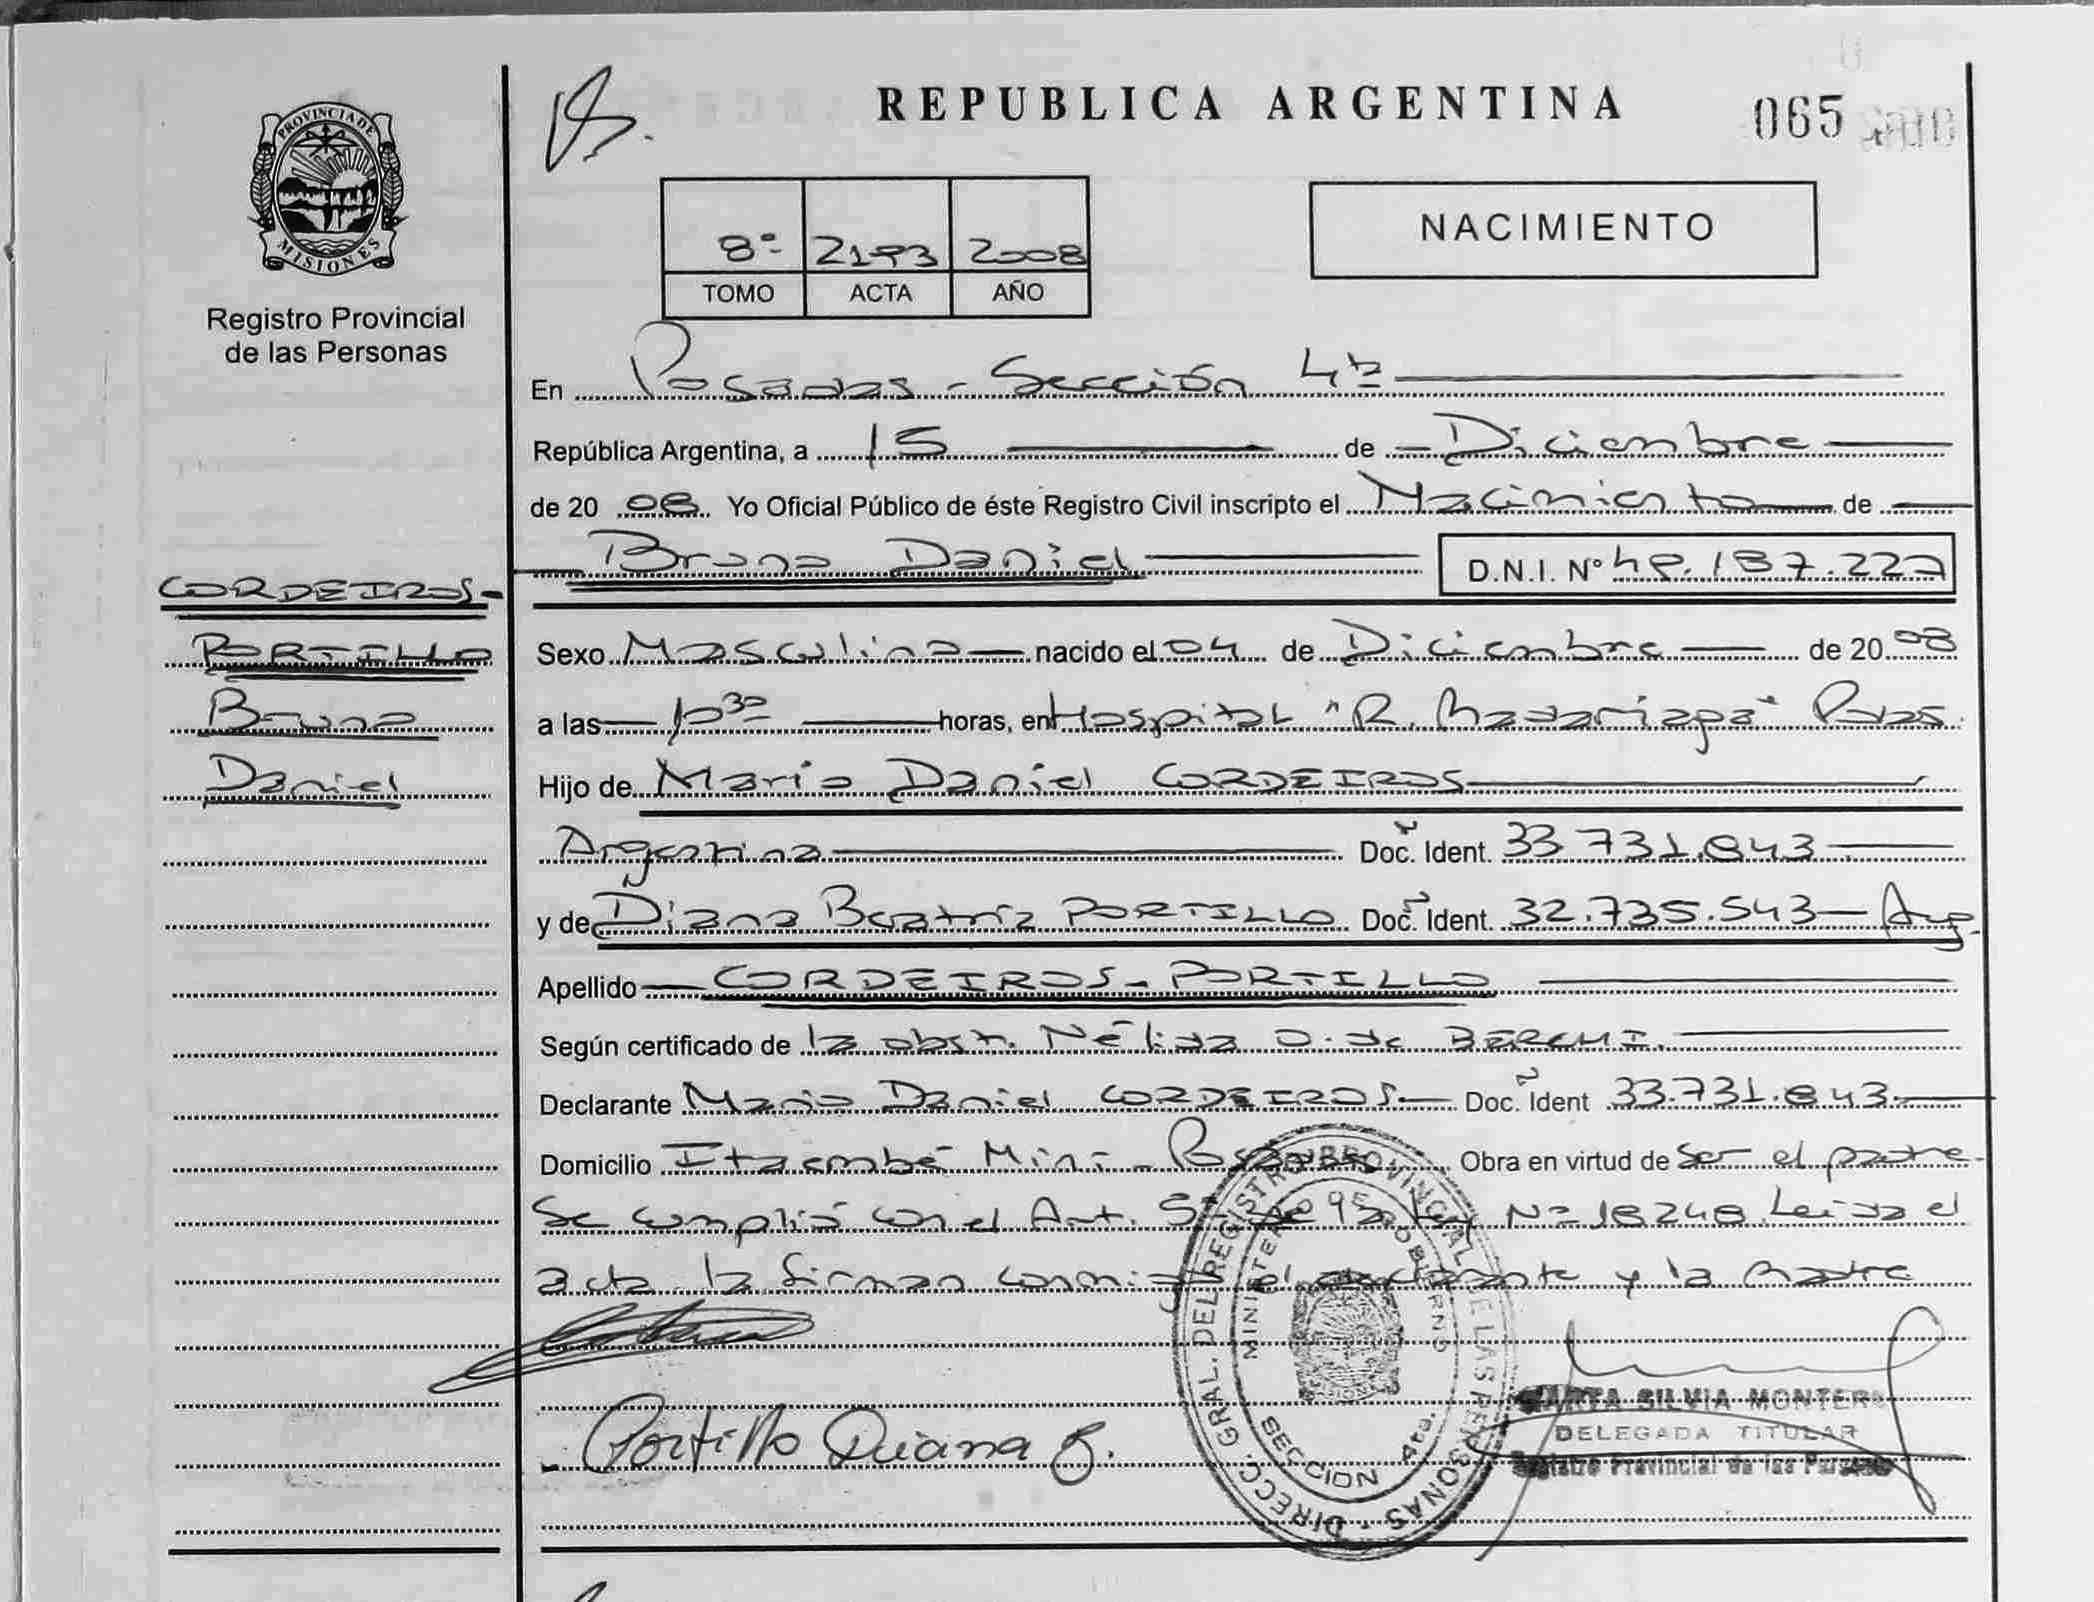 REPUBLICA ARGENTINA
065
PROVINCIA DE MISIONES
Registro Provincial
de las Personas
8º 2193 2008
TOMO ACTA AÑO
NACIMIENTO
En Posadas - Sección 4ta
República Argentina, a 15 de Diciembre
de 2008 Yo Oficial Público de éste Registro Civil inscripto el Nacimiento de
Bruno Daniel D.N.I. Nº 49.187.227
CORDEIROS-
PORTILLO
Bruno
Daniel
Sexo Masculino nacido el 04 de Diciembre de 2008
a las 10³⁰ horas, en Hospital "R. Madariaga" Pdas.
Hijo de Mario Daniel CORDEIROS
Argentina Doc. Ident. 33 731.843
y de Diana Beatríz PORTILLO Doc. Ident. 32.735.543 - Arg.
Apellido CORDEIROS - PORTILLO
Según certificado de la obst. Nélida O. de BERCHI.
Declarante Mario Daniel CORDEIROS. Doc. Ident 33.731.843
Domicilio Itaembé Miní - Obra en virtud de ser el padre.
Se cumplió con el Art. Ley Nº 18248. Leida el
acta la firman conmigo el declarante y la madre
Portillo Diana B.
DIRECC. GRAL. DEL REGISTRO PROVINCIAL DE LAS PERSONAS
MINISTERIO DE GOBIERNO
SECCION 4ta.
MARTA SILVIA MONTERO
DELEGADA TITULAR
Registro Provincial de las Personas